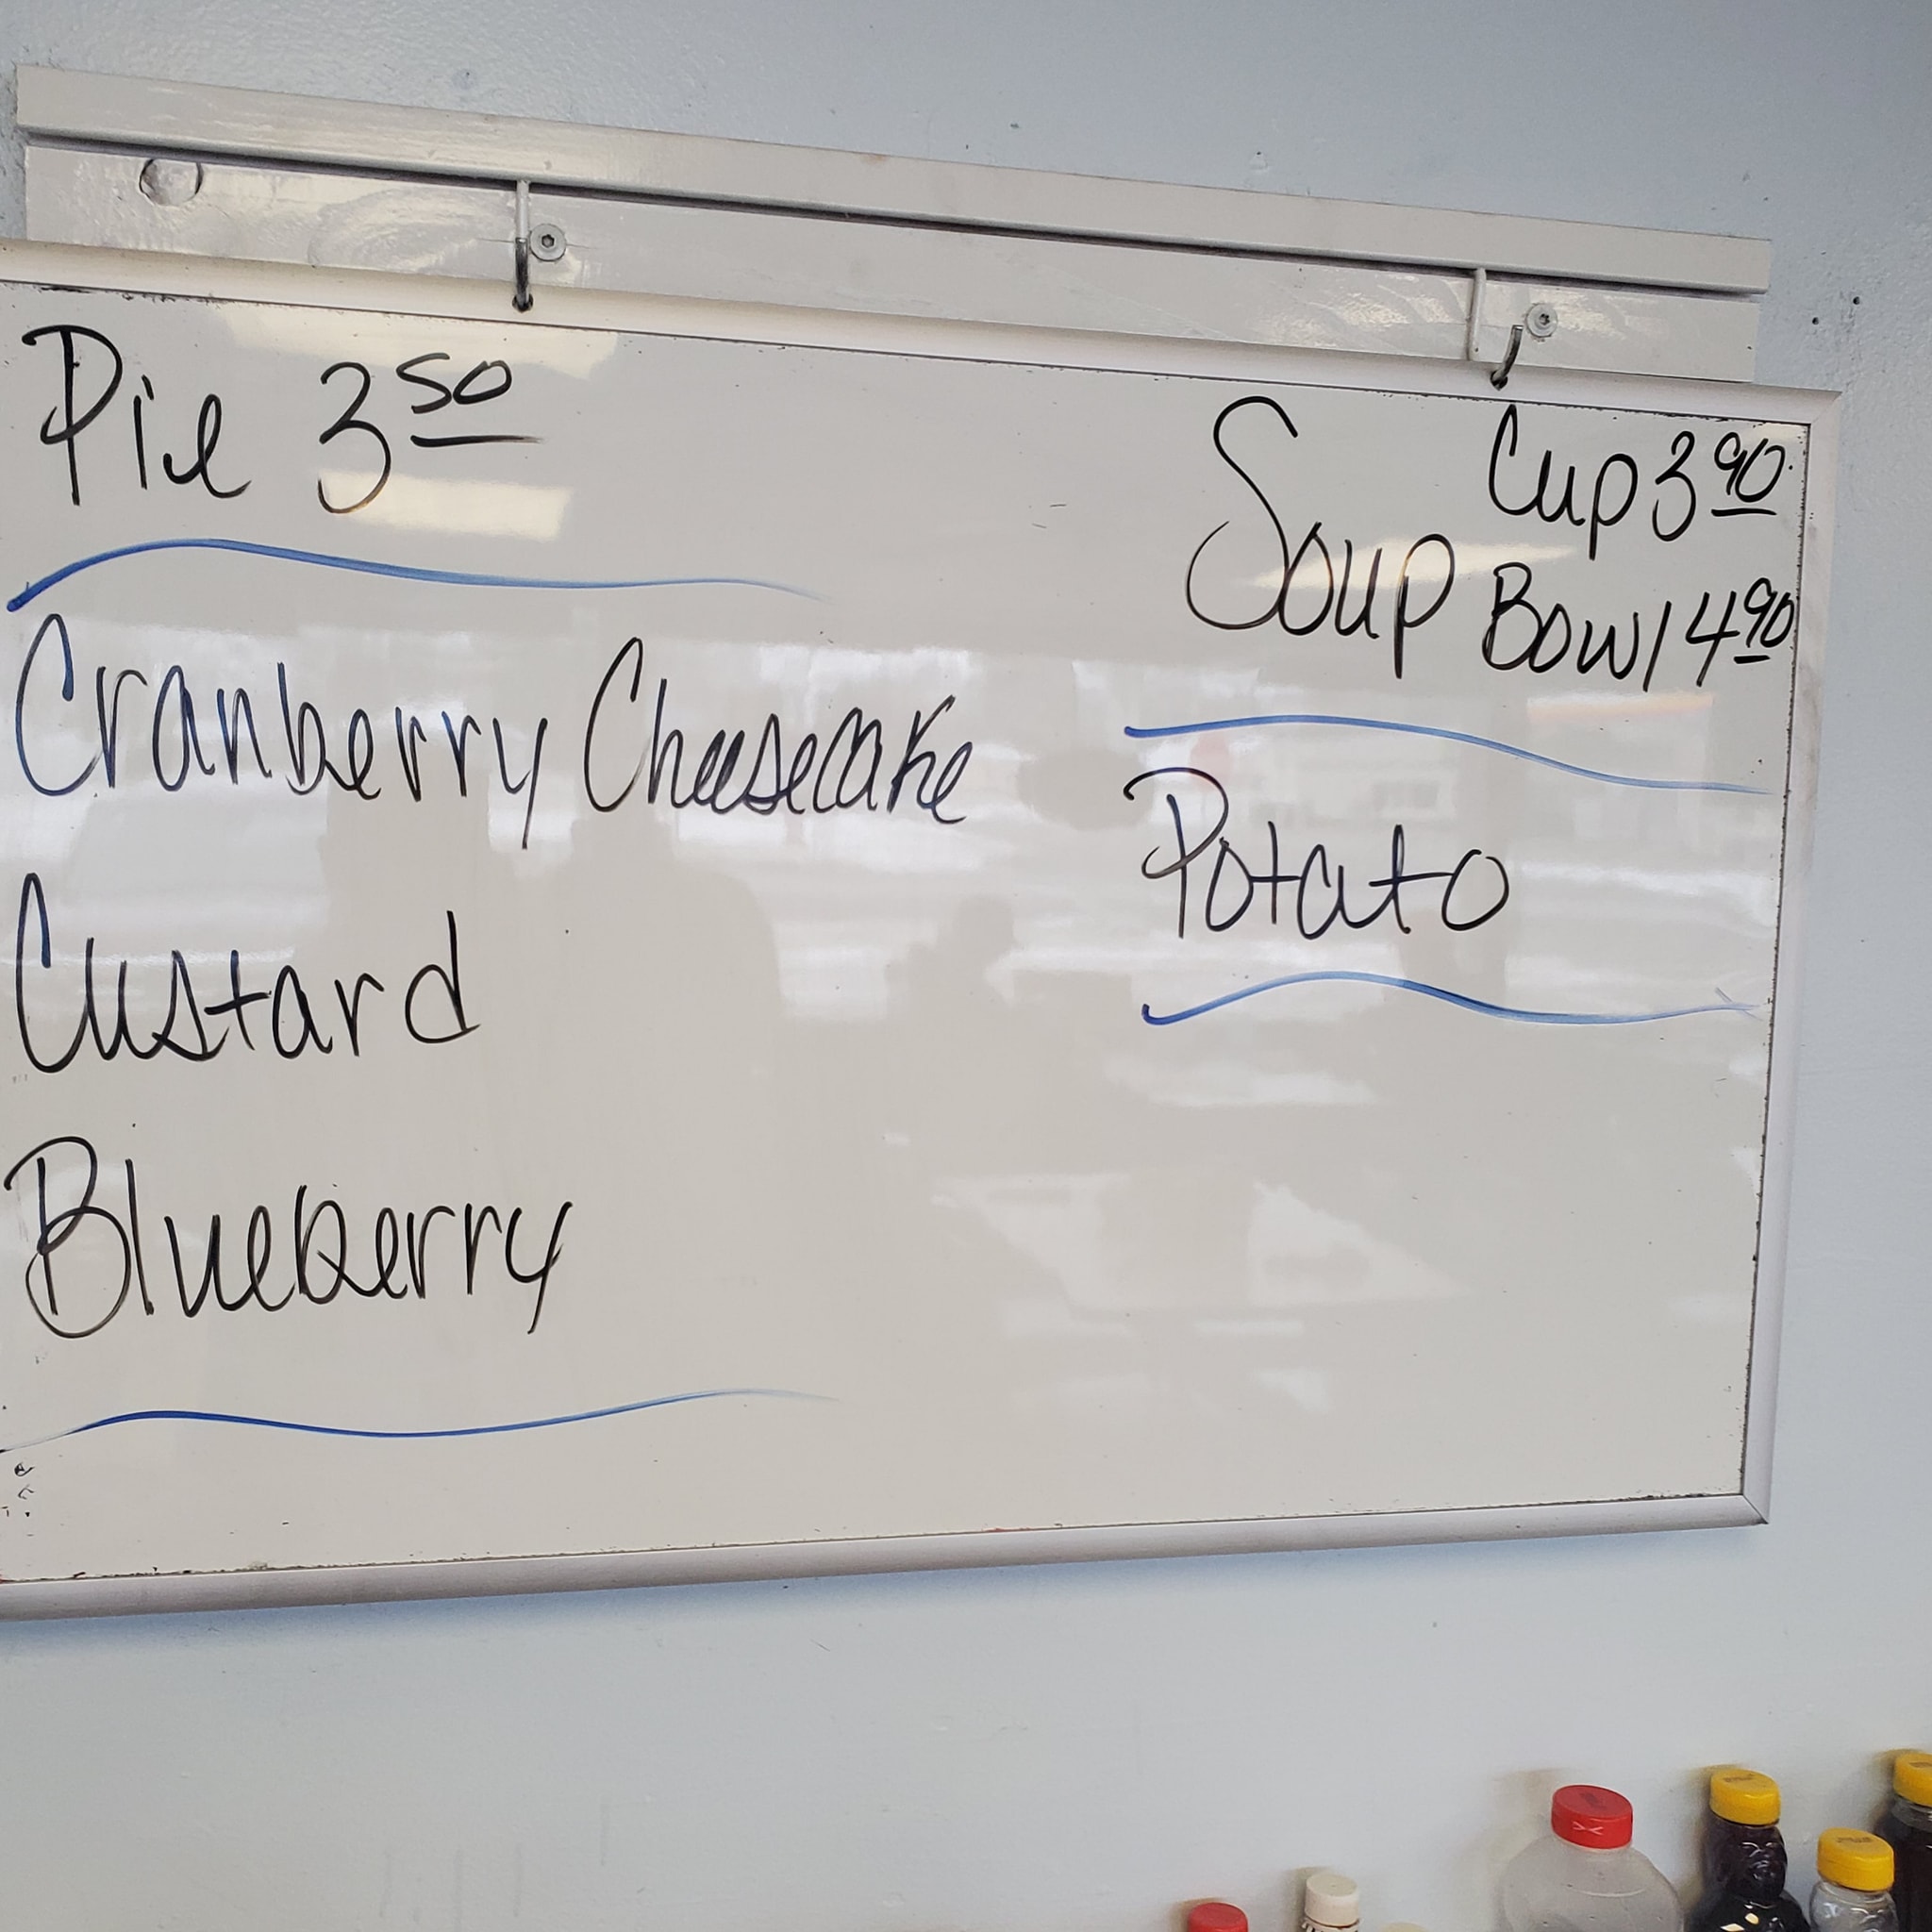 Pie 3 50
Cranberry Cheesecake
Custard
Blueberry
Cup 3 90
Soup Bowl 4 90
Potato